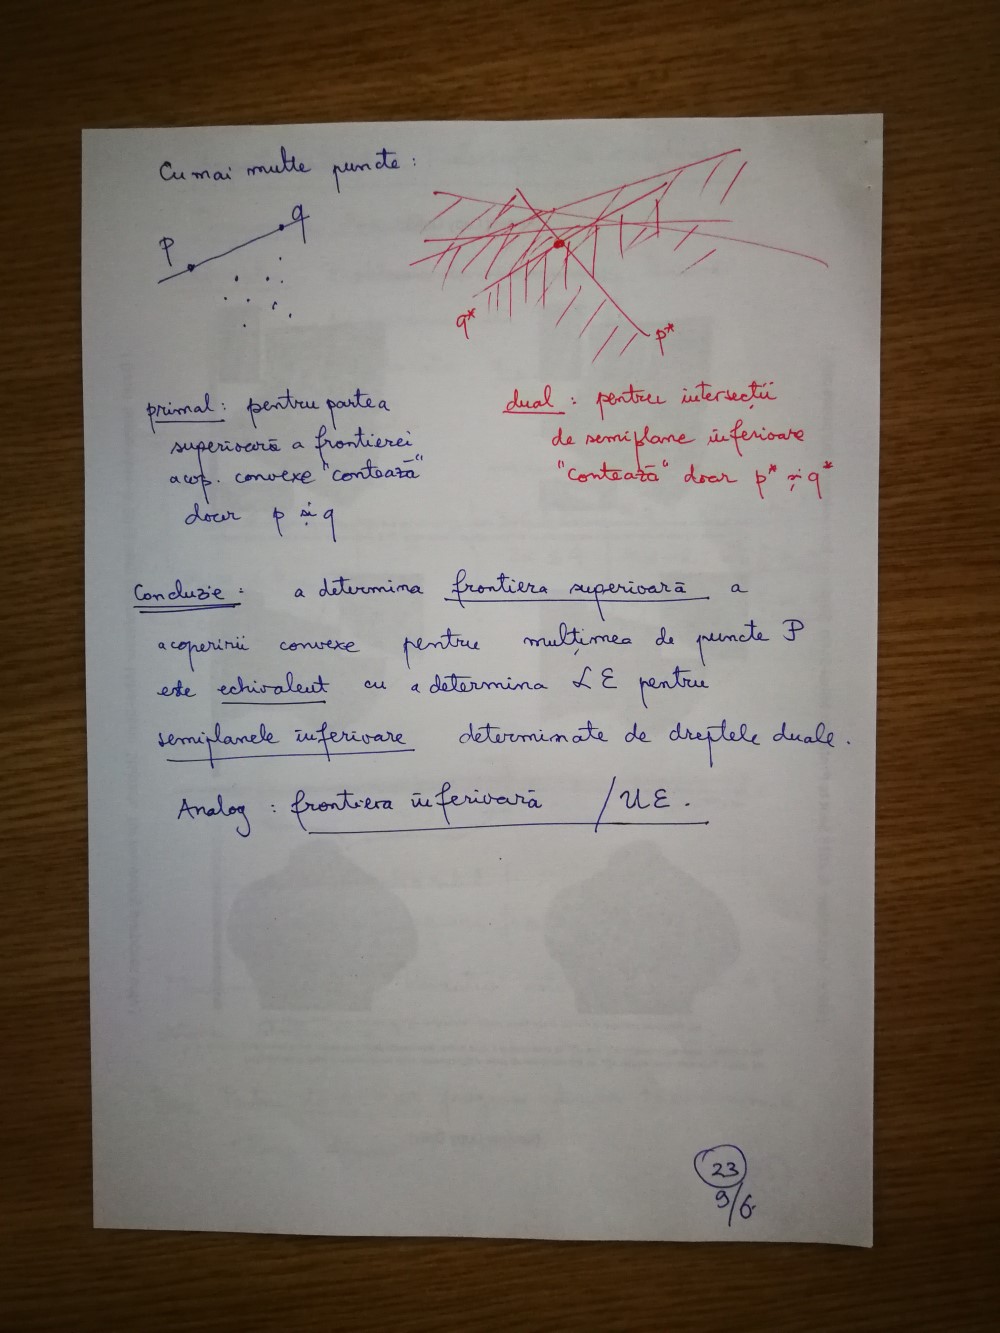 Cu mai multe puncte:
p
q
q*
p*
primal: pentru partea
superioară a frontierei
acop. convexe "contează"
doar p și q
dual: pentru intersecții
de semiplane inferioare
"contează" doar p* și q*
Concluzie: a determina frontiera superioară a
acoperirii convexe pentru mulțimea de puncte P
este echivalent cu a determina LE pentru
semiplanele inferioare determinate de dreptele duale.
Analog: frontiera inferioară / UE.
23
9/6